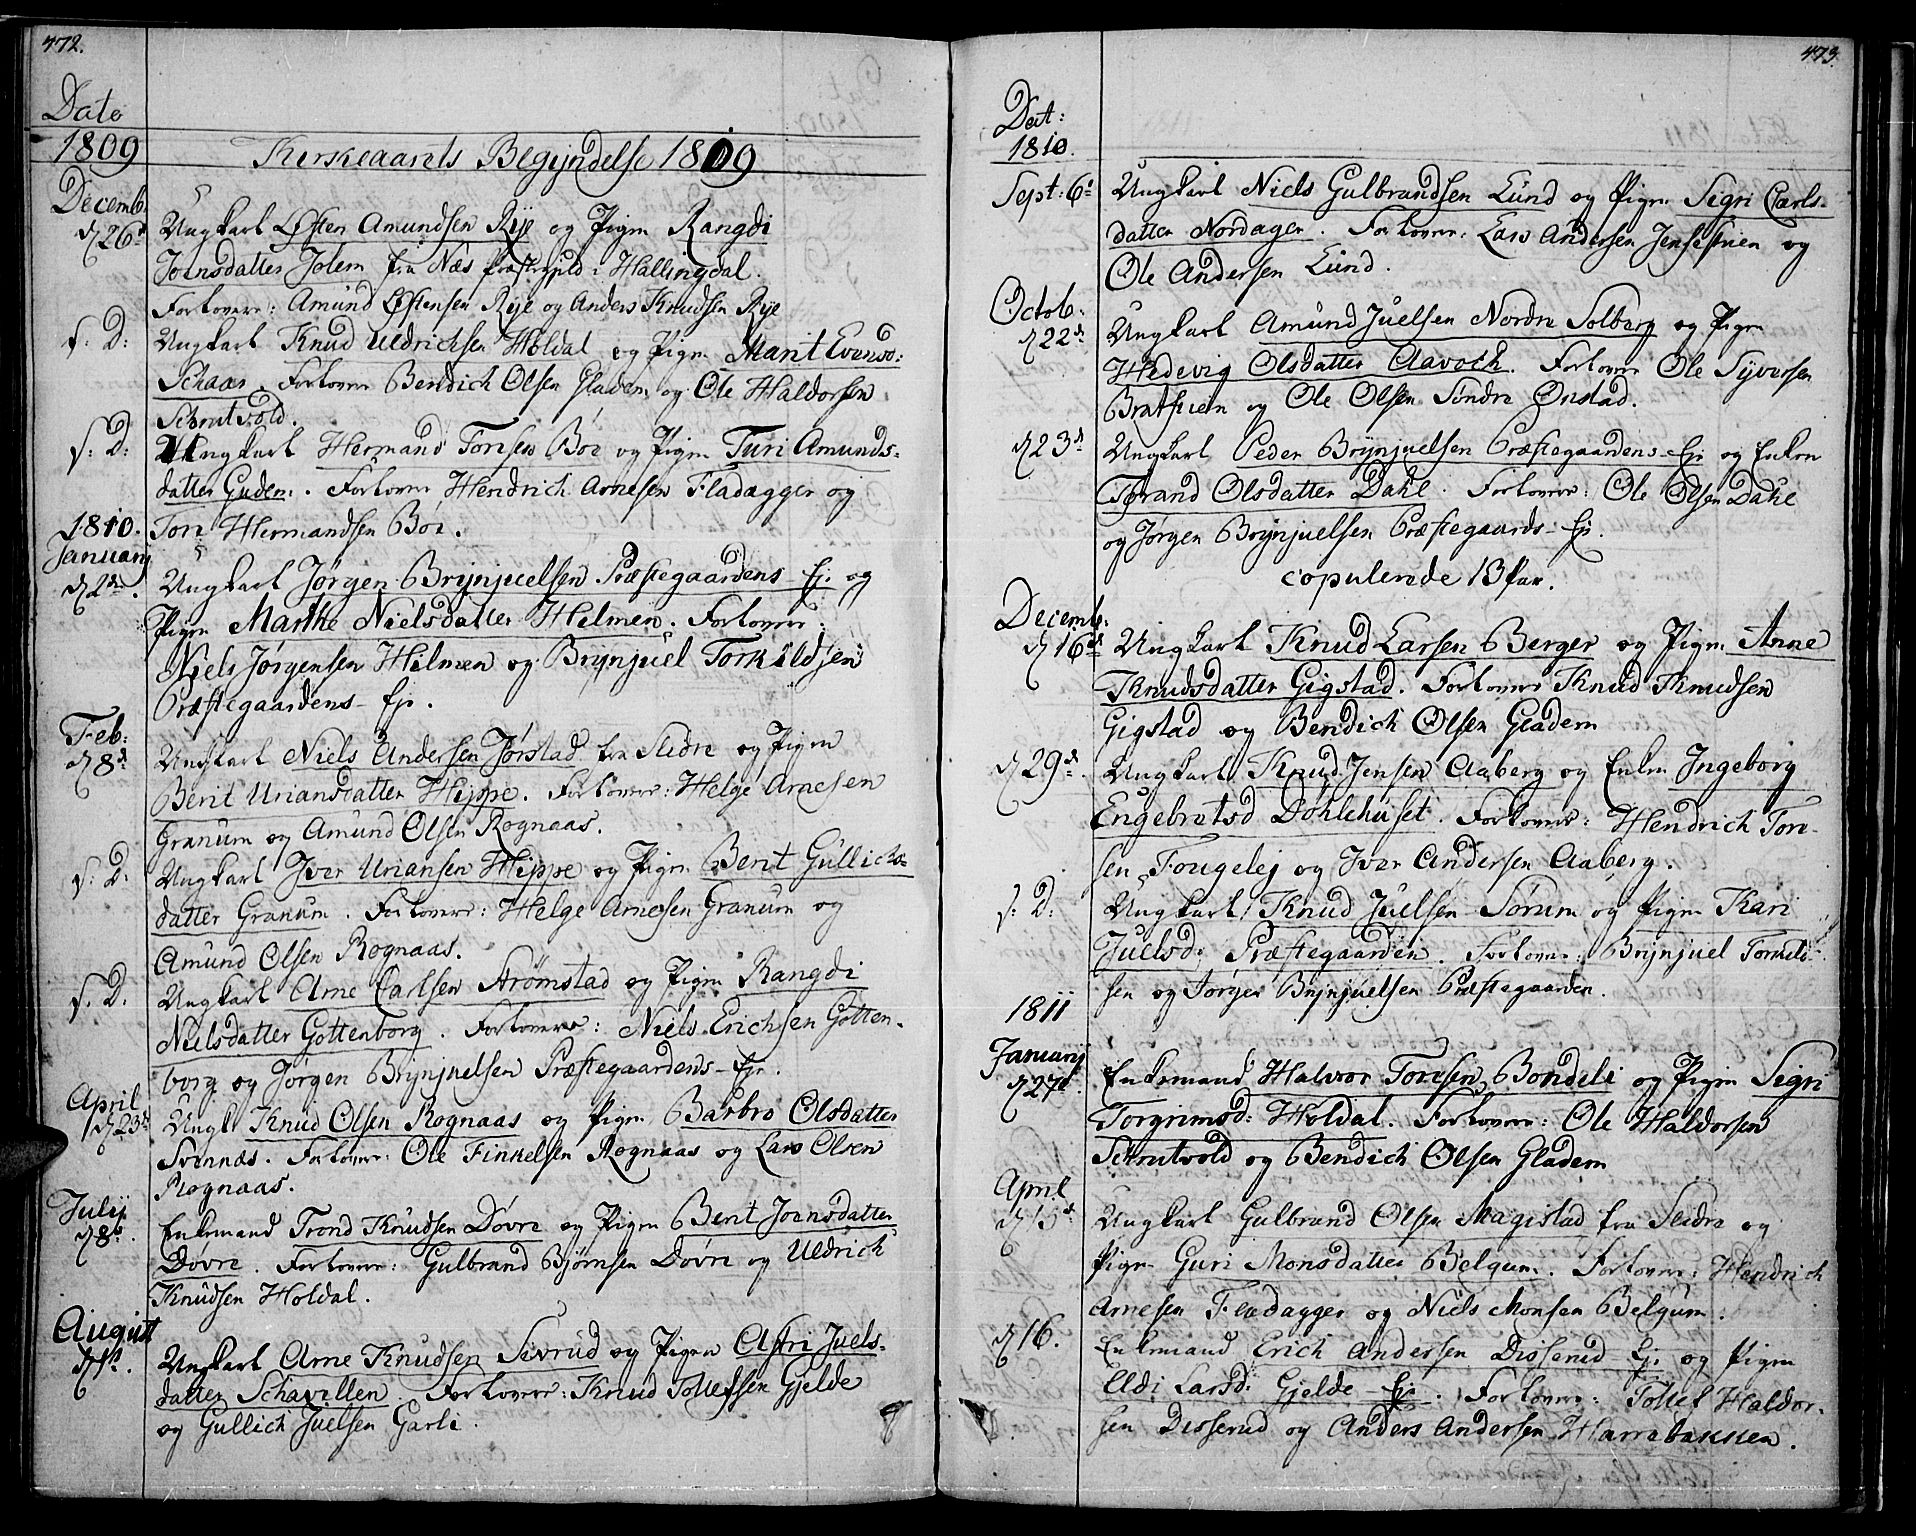 472.
Dato
1809
Kirkeaarets Begijndelse 1809
Decemb.
d 26d
Ungkarl Østen Amundsen Rÿe og Pigen Rangdi
Joensdatter Jolem fra Næs Præstegield i Hallingdal.
Forlovere: Amund Østensen Rÿe og Anders Knudsen Rÿe
s. D:
Ungkarl Knud Uldrichsen Holdal og Pigen Marit Evensd:
Schaar. Forlover Bendich Olsen Gladem og Ole Haldorsen
Schrutvold.
s: D:
Ungkarl Hermand Toresen Böe og Pigen Turi Amunds-
datter Gudem. Forlover Hendrich Arnesen Fladagger og
Tore Hermandsen Böe.
1810.
January
d 2den.
Ungkarl Jørgen Brÿnjuelsen Præstegaardens-Ej. og
Pigen Marthe Nielsdatter Helmen. Forlovere:
Niels Jørgensen Hilmen og Brÿnjuel Torkildsen
Præstegaardens-Ej.
Feb:
d 8d
Ungkarl Niels Andersen Jørstad fra Slidre og Pigen
Berit Uriansdatter Hippe. Forlovere: Helge Arnesen
Granum og Amund Olsen Rognaas.
s. D:
Ungkarl Iver Uriansen Hippe og Pigen Berit Gullichs-
datter Granum. Forlovere: Helge Arnesen Granum og
Amund Olsen Rognaas.
s. D.
Ungkarl Arne Carlsen Strømstad og Pigen Rangdi
Nielsdatter Gottenborg. Forlovere: Niels Erichsen Gotten-
borg og Jørgen Brÿnjuelsen Præstegaardens-Ej.
April
d 23d
Ungk. Knud Olsen Rognaas og Pigen Barbro Olsdatter
Svennæs. Forlovere: Ole Finkelsen Rognaas og Lars Olsen
Rognaas.
Julij
d 8d.
Enkemand Trond Knudsen Dövre og Pigen Berit Joensdatter
Døvre. Forlovere: Gulbrand Bjørnsen Døvre og Uldrich
Knudsen Holdal.
August
d 1st.
Ungkarl Arne Knudsen Sivrud og Pigen Astri Juels-
datter Schavellen. Forlovere: Knud Tollefsen Gjelde
og Gullich Juelsen Garli.
473.
Dat:
1810.
Sept: 6d
Ungkarl Niels Gulbrandsen Lund og Pigen Sigri Carls-
datter Nordager. Forlovere: Lars Andersen Jensestuen og
Ole Andersen Lund.
Octob.
d 22d
Ungkarl Amund Juelsen Nordre Solberg og Pigen
Hedevig Olsdatter Aavoth. Forlover Ole Syversen
Brathuen og Ole Olsen Søndre Onstad.
d 23d
Ungkarl Peder Brÿnjuelsen Præstegaardens-Ej. og Enken
Torand Olsdatter Dahl. Forlovere: Ole Olsen Dahl
og Jørgen Brÿnjuelsen Præstegaards-Ej.
copulerede 13 Par.
Decemb.
d 16d
Ungkarl Knud Larsen Berger og Pigen Anne
Knudsdatter Gigstad. Forlovere Knud Knudsen
Gigstad og Bendich Olsen Gladem
d 29d.
Ungkarl Knud Jensen Aaberg og Enken Ingeborg
Engebretsd Döhlehuset. Forlovere: Hendrich Tore-
sen Fougelej og Iver Andersen Aaberg.
s: D:
Ungkarl Knud Juelsen Sørum og Pigen Kari
Juelsd: Præstegaarden. Forlovere: Brÿnjuel Torkild-
sen og Jørgen Brÿnjuelsen Præstegaarden.
1811
January
d 27d.
Enkemand Halvor Toresen Bondeli og Pigen Sigri
Torgrimsd: Holdal. Forlovere: Ole Haldorsen
Schrutvold og Bendich Olsen Gladem
April
d 15d
Ungkarl Gulbrand Olsen Magistad fra Slidre og
Pigen Guri Monsdatter Belgum. Forlovere: Hendrich
Arnesen Fladagger og Niels Monsen Belgum.
d 16.
Enkemand Erich Andersen Disserud Ej. og Pigen
Eldi Larsd: Gjelde-Ej. Forlovere: Tollef Haldor-
sen Disserud og Anders Andersen Harrebakken.